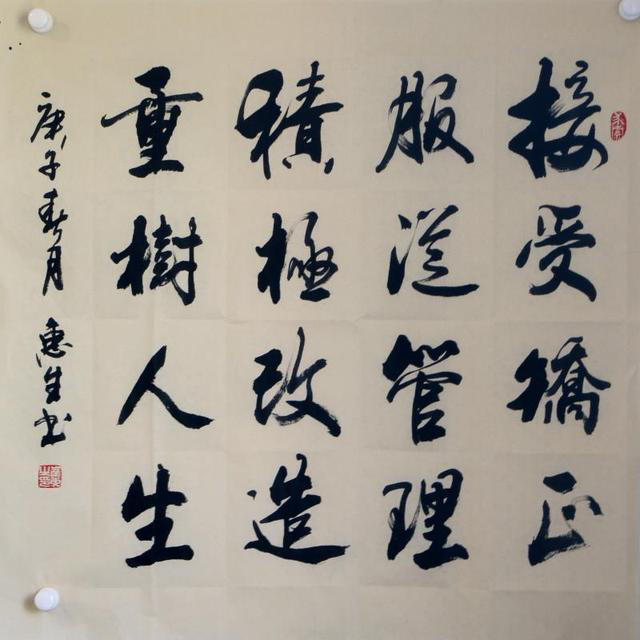 接受矯正
服從管理
積極改造
重樹人生
庚子春月 惠生书